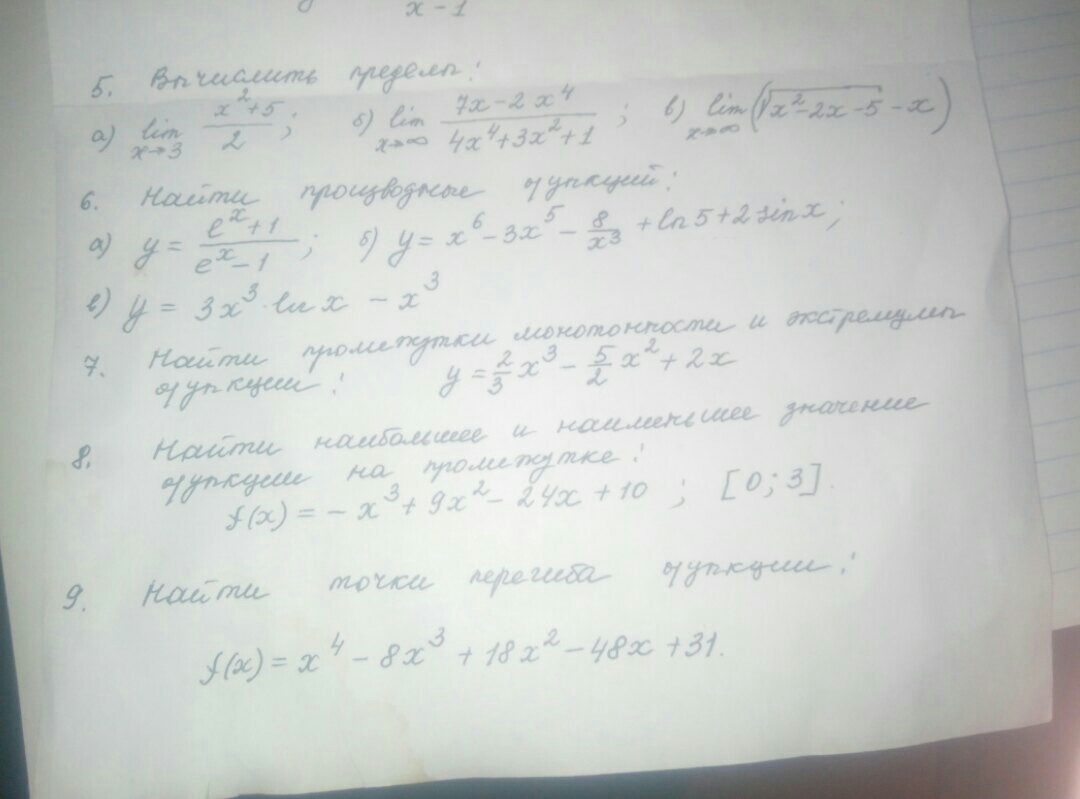 x-1
5. Вычислить пределы:
а) lim x→3 (x²+5)/2; б) lim x→∞ (7x-2x⁴)/(4x⁴+3x²+1); в) lim x→∞ (√(x²-2x-5) - x)
6. Найти производные функций:
а) y = (eˣ+1)/(eˣ-1); б) y = x⁶-3x⁵-8/x³+ln5+2sinx;
в) y = 3x³·lnx - x³
7. Найти промежутки монотонности и экстремумы
функции: y = 2/3x³ - 5/2x² + 2x
8. Найти наибольшее и наименьшее значение
функции на промежутке:
f(x) = -x³+9x²-24x+10; [0;3].
9. Найти точки перегиба функции:
f(x) = x⁴ - 8x³ + 18x² - 48x + 31.